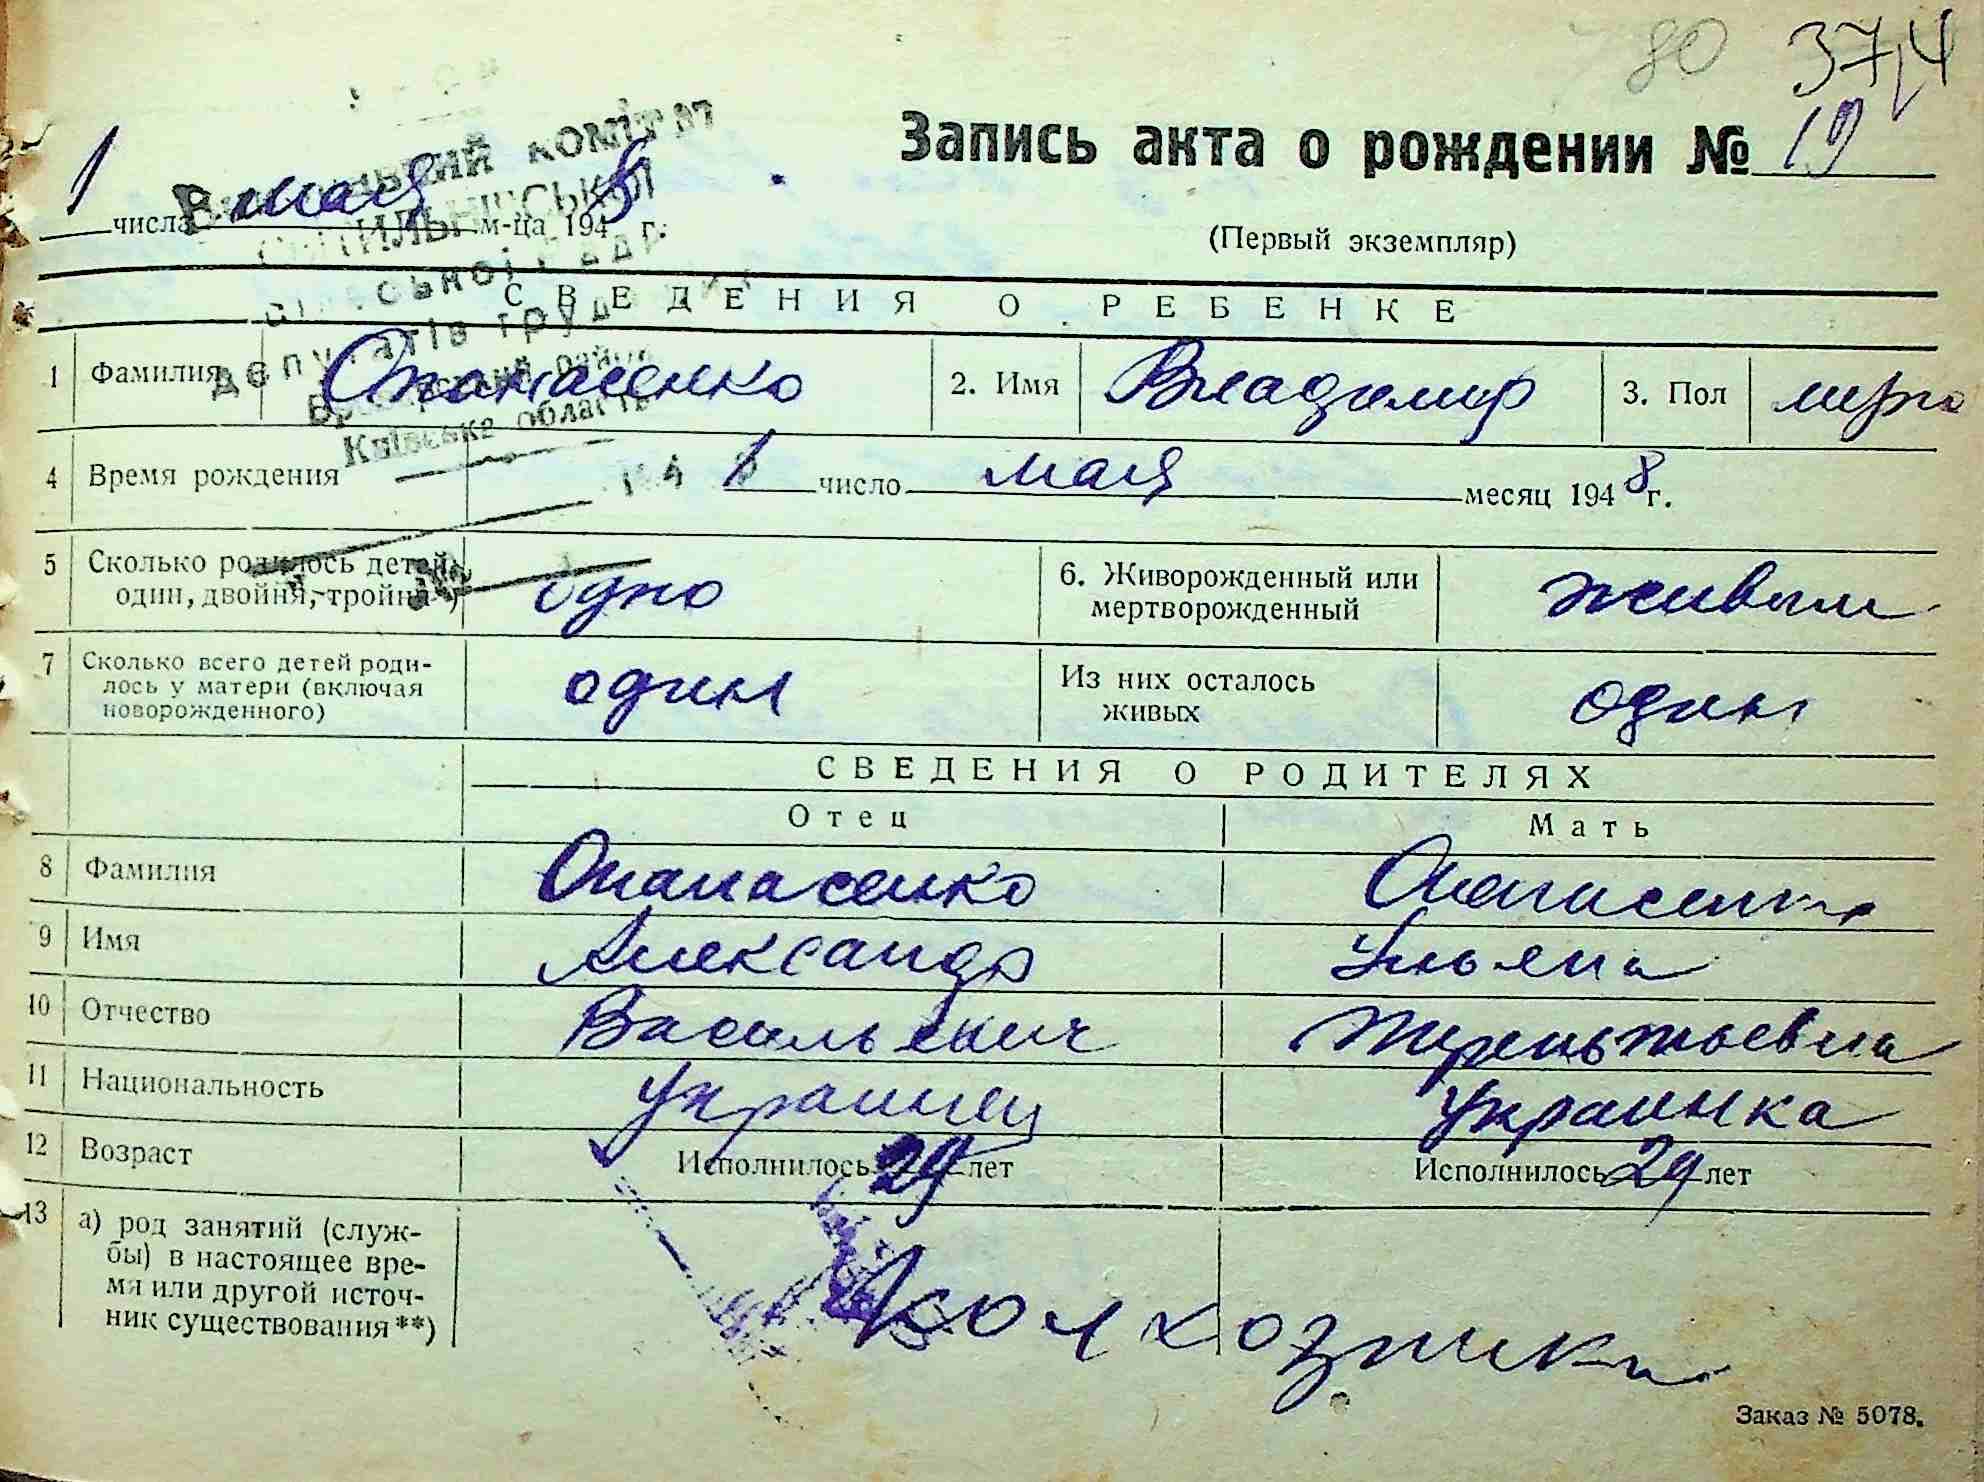 80 37,4
Запись акта о рождении № 19
1 числа мая м-ца 1948 г.
(Первый экземпляр)
комітет
депутатів
Київська область
СВЕДЕНИЯ О РЕБЕНКЕ
1 Фамилия Опанасенко 2. Имя Владимир 3. Пол
4 Время рождения 1 число мая месяц 1948 г.
5 Сколько родилось детей один, двойня, тройня *) одно 6. Живорожденный или мертворожденный живым
7 Сколько всего детей родилось у матери (включая новорожденного) один Из них осталось живых один
СВЕДЕНИЯ О РОДИТЕЛЯХ
Отец Мать
8 Фамилия Опанасенко Опанасенко
9 Имя Александр Ульяна
10 Отчество Васильевич Терентьевна
11 Национальность украинец украинка
12 Возраст Исполнилось 29 лет Исполнилось 29 лет
13 а) род занятий (служ-
бы) в настоящее вре-
мя или другой источ-
ник существования**)
Колхозники
Заказ № 5078.